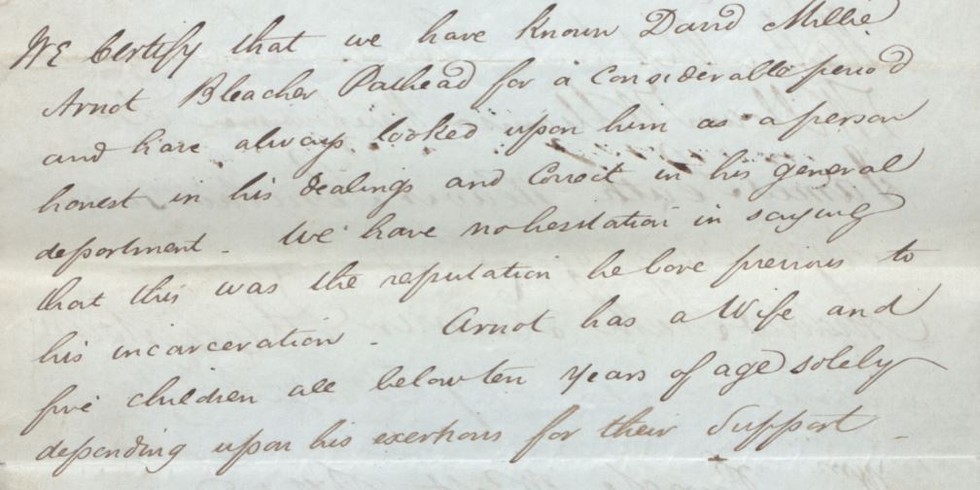 WE Certify that we have known David Millie
Arnot Bleacher Pathead for a Considerable period
and have always looked upon him as a person
honest in his dealings and Correct in his general
deportment - We have no hesitation in saying
that this was the reputation he bore previous to
his incarceration - Arnot has a Wife and
five children all below ten years of age solely
depending upon his exertions for their Support -